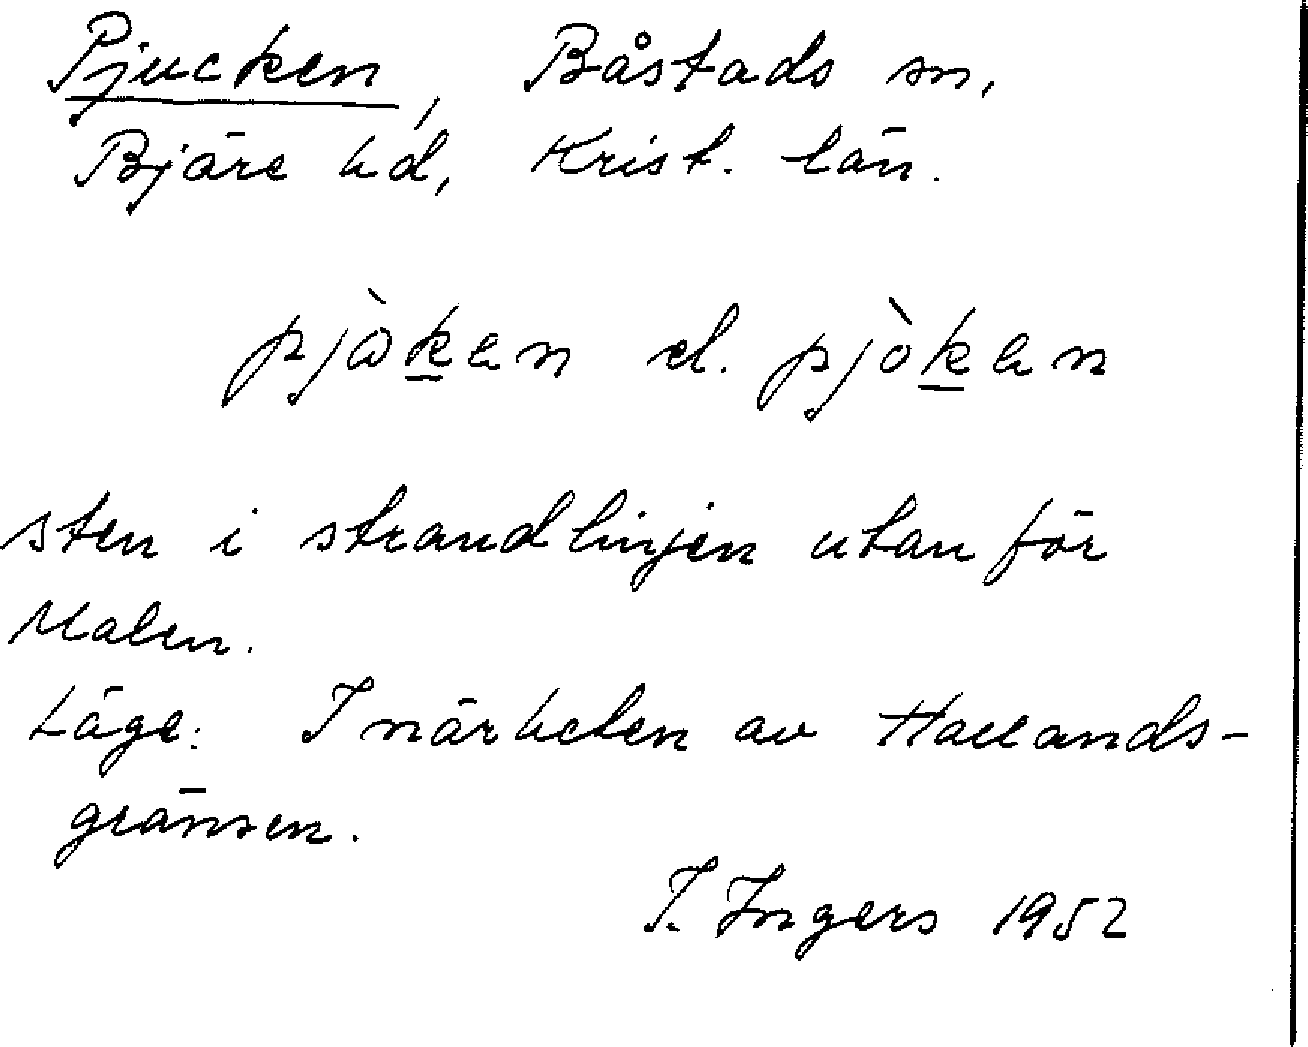 Pjucken, Båstads sn,
Bjäre hd, Krist. län.
pjàken el. pjòken
sten i strandlinjen utanför
Malen.
Läge: I närheten av Hallands-
gränsen.
I. Ingers 1952